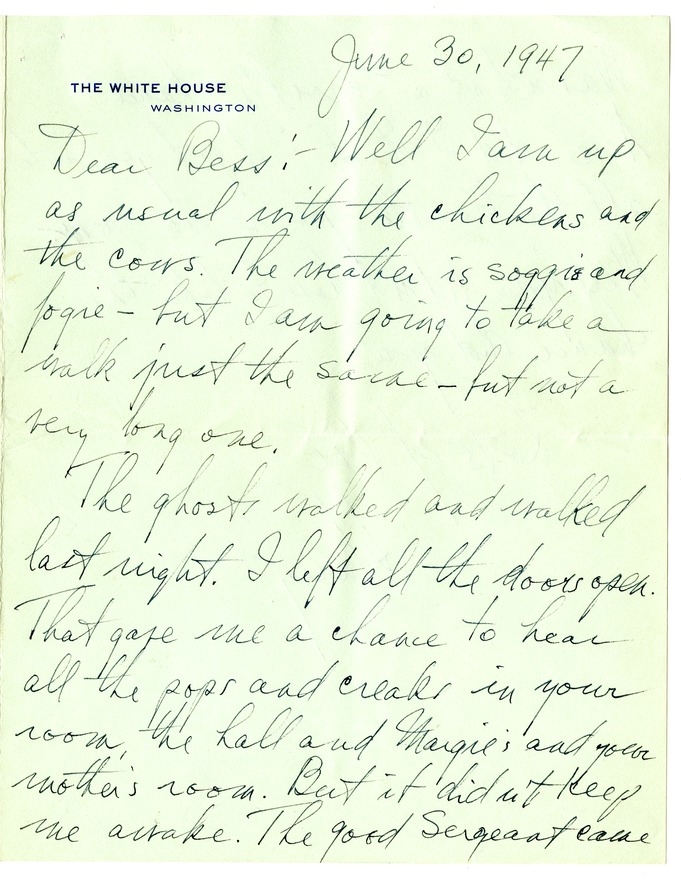 June 30, 1947
THE WHITE HOUSE
WASHINGTON
Dear Bess:- Well I am up
as usual with the chickens and
the cows. The weather is soggie and
fogie - but I am going to take a
walk just the same - but not a
very long one.
The ghosts walked and walked
last night. I left all the doors open.
That gave me a chance to hear
all the pops and creaks in your
room, the hall and Margie's and your
mother's room. But it didn't keep
me awake. The good Sergeant came